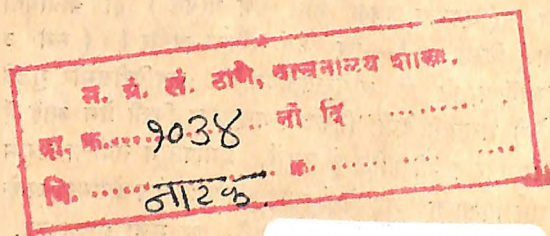 म. ग्रं. सं. ठाणे, वाचनालय शाखा.
दा. क्र. ........ १०३४ ..... नों दि ............
वि. ........ नाटक. ........ क्र. ............